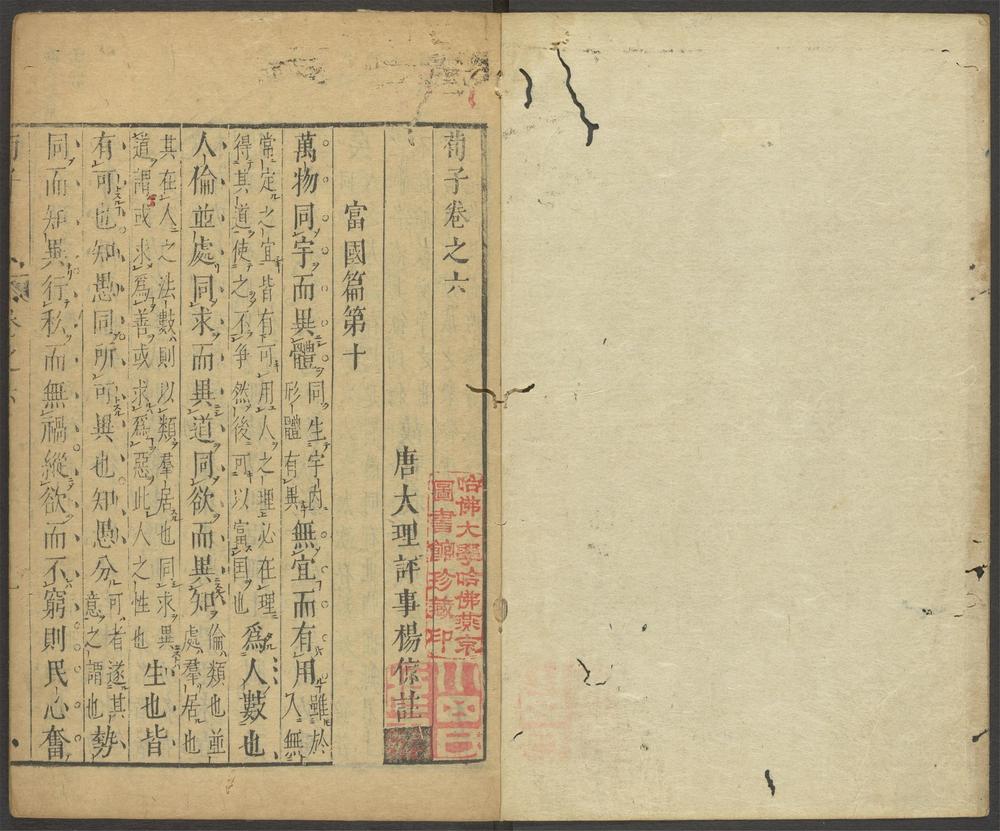 荀子卷之六
唐大理評事楊倞註
富國篇第十
萬物同宇而異體同生宇內形體有異無宜而有用雖於人無
常定之宜皆有可用人之理必在理得其道使之不爭然後可以富国也為人數也
人倫並處同求而異道同欲而異知倫類也並處羣居也
其在人之法數則以類羣居也同求異道謂或求為善或求為惡此人之性也生也皆
有可也知愚同所可異也知愚分可者遂其意之謂也勢
同而知異行私而無禍縱欲而不窮則民心奮
哈佛大學哈佛燕京
圖書館珍藏印